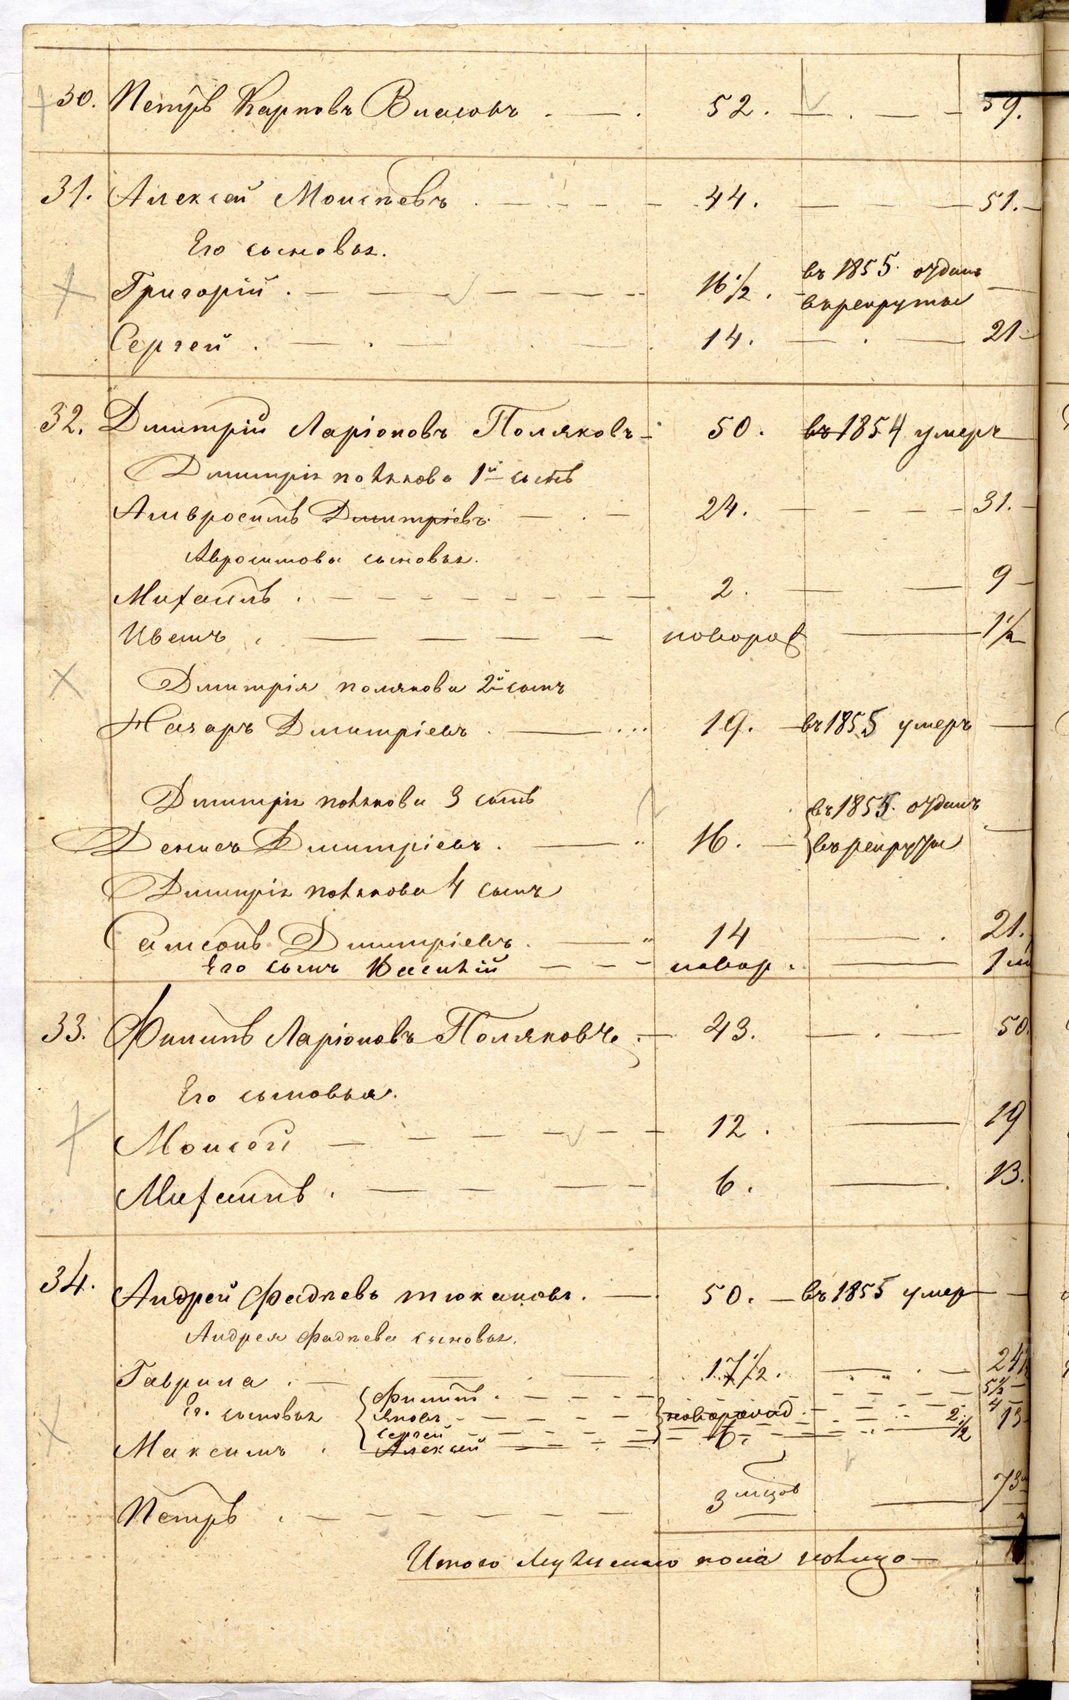 30. Петръ Карповъ Власовъ 52. 59.
31. Алексей Моисѣевъ 44. 51.
Его сыновья.
Григорій 16 1/2. въ 1855. отданъ в рекруты
Сергей 14. 21
32. Дмитрій Ларіоновъ Поляковъ 50. въ 1854 умеръ
Дмитрія Полякова 1й сынъ
Амвросимъ Дмитріевъ 24. 31.
Авросимова сыновья.
Михаилъ 2. 9
Иванъ новорож 1 1/2
Дмитрія Полякова 2й сынъ
Назаръ Дмитріевъ 19. въ 1855 умеръ
Дмитрія Полякова 3 сынъ
Денисъ Дмитріевъ. 16. въ 1855. отданъ въ рекруты
Дмитрія Полякова 4 сынъ
Самсонъ Дмитріевъ. 14 21.
Его сынъ Василій новор. 1
33. Филипъ Ларіоновъ Поляковъ 43. 50.
Его сыновья.
Моисей 12. 19
Михаилъ 6. 13.
34. Андрей Фадѣевъ Тюкановъ. 50. въ 1855 умер
Андрея Фадѣева сыновья.
Гаврила 17 1/2. 24 1/2
Ег. сыновья Филипъ 5 1/2
Яковъ новорожд 4
Сергей 2 1/2
Алексей
Максимъ 6. 13
Петръ 3 мѣсов 7 3
Итого мужеска пола налицо